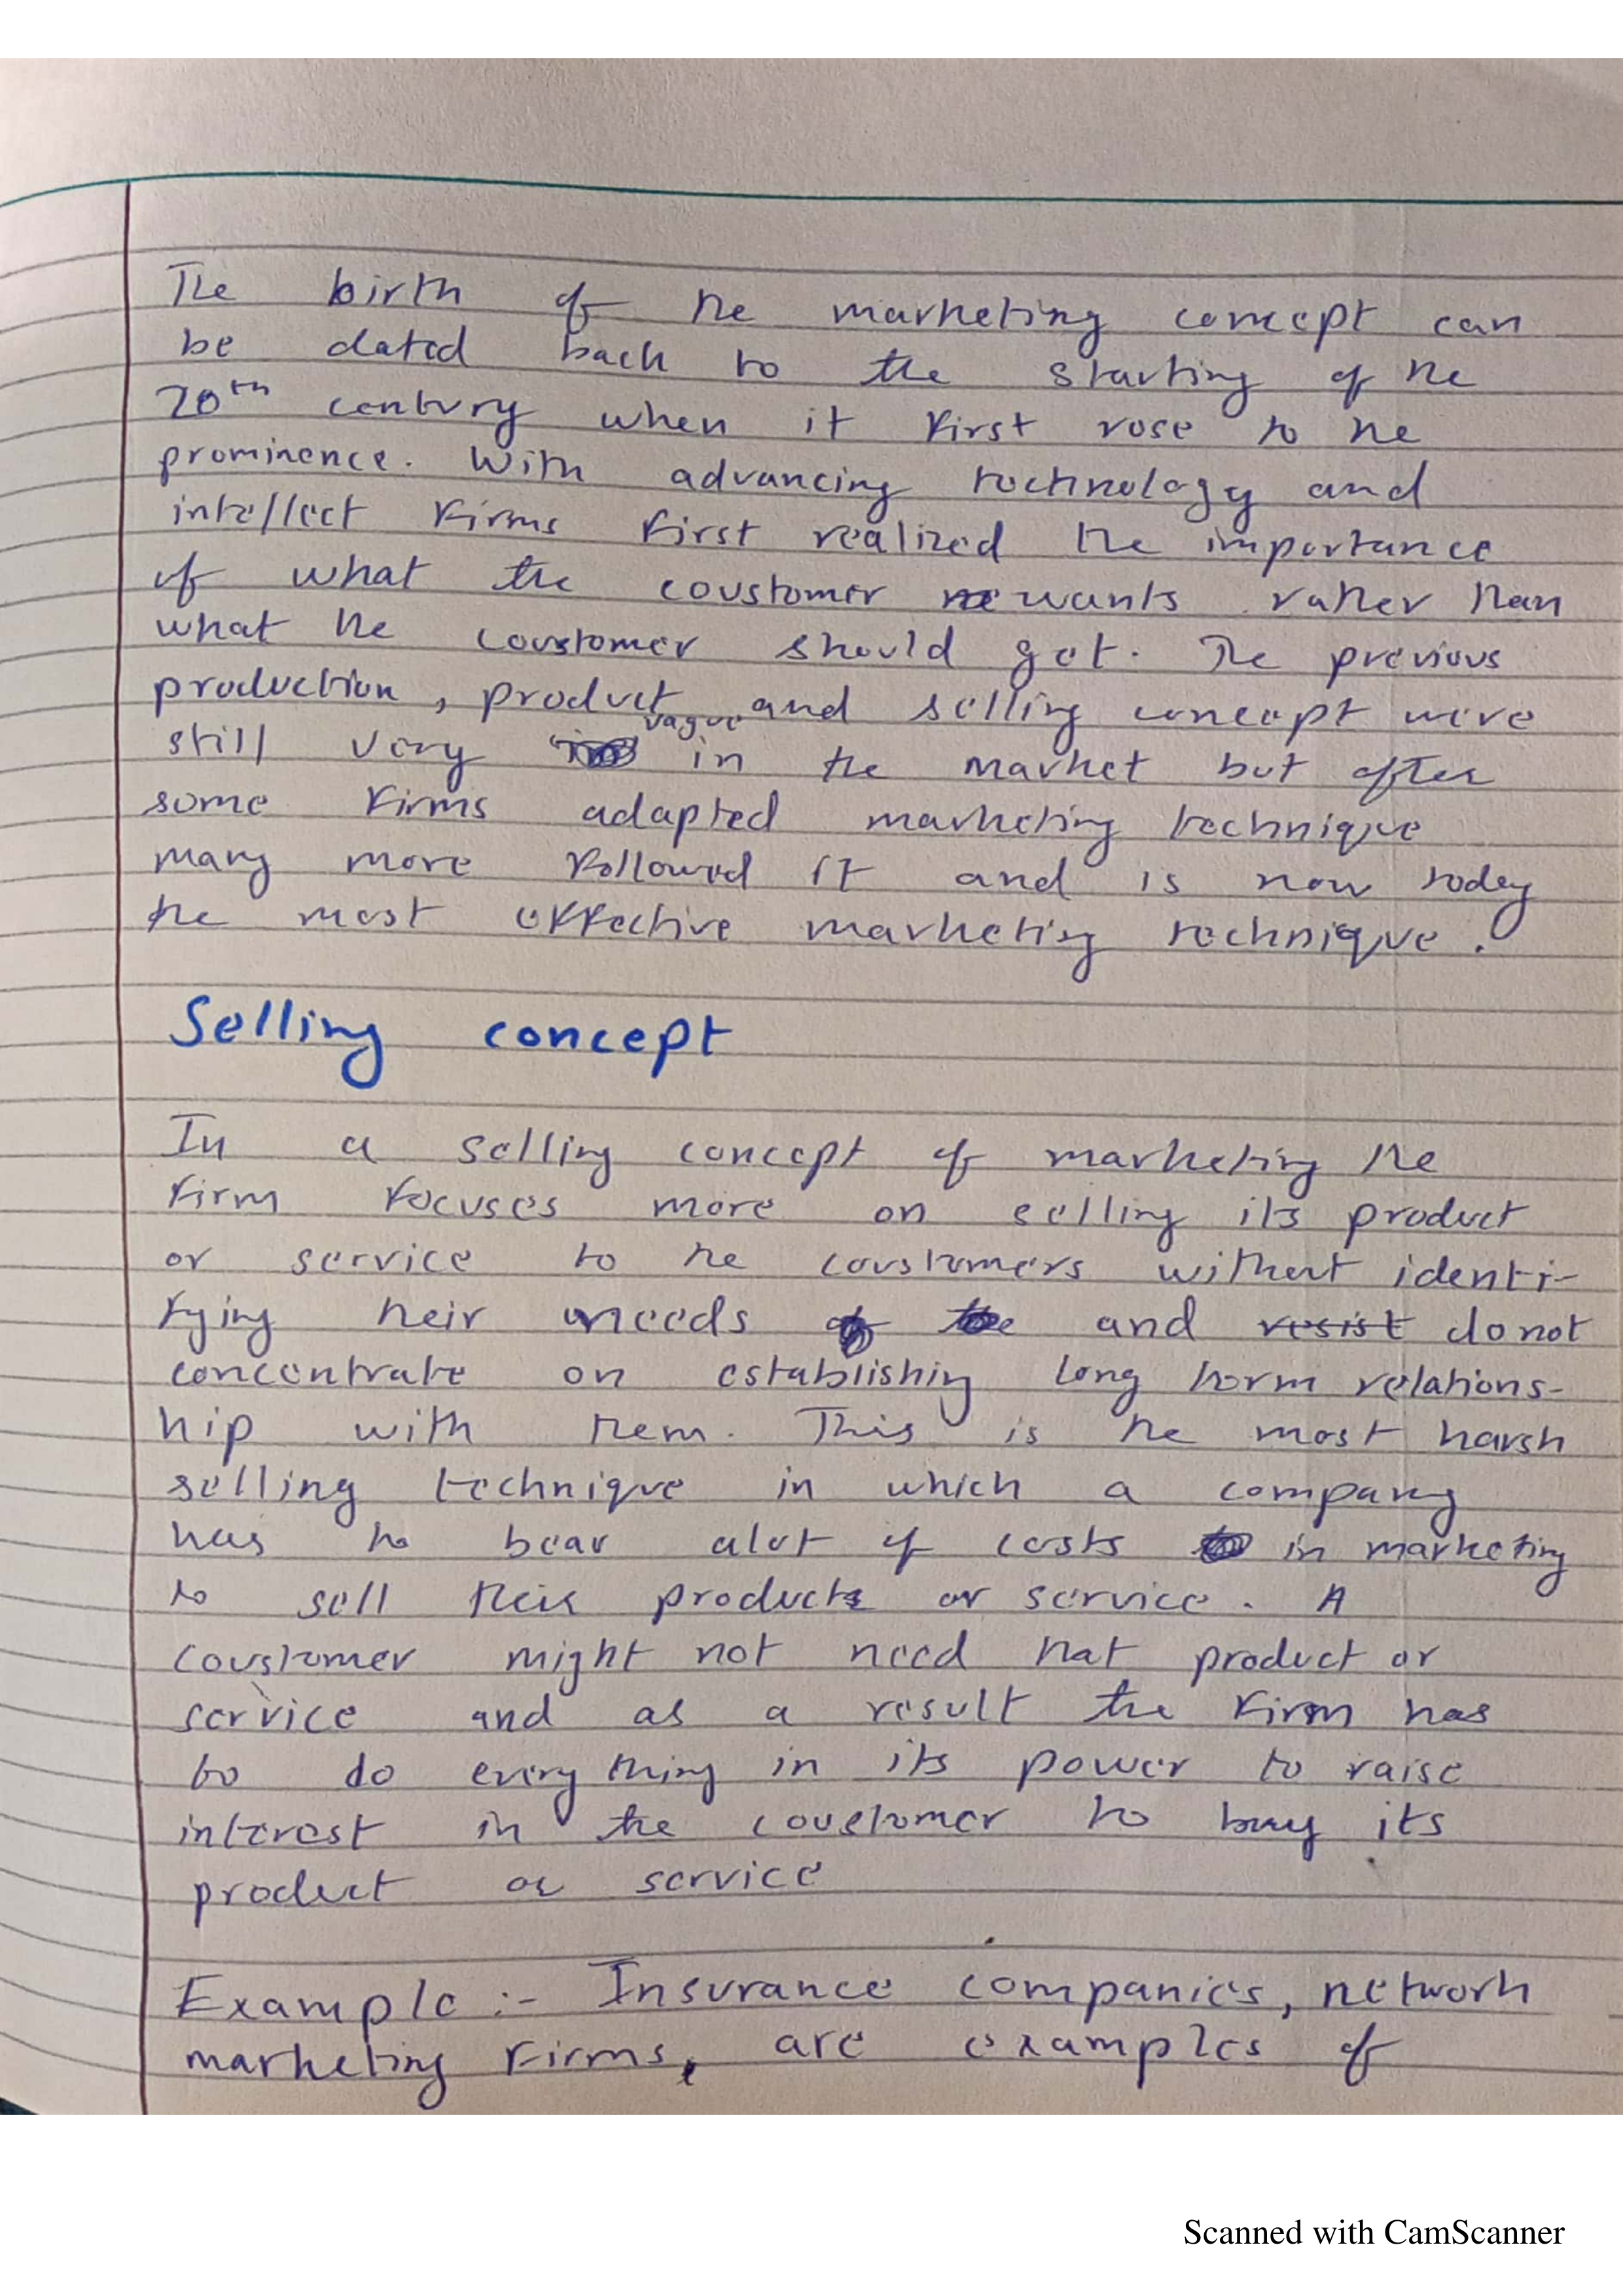 The birth of the marketing concept can
be dated back to the starting of the
20th century when it first rose to the
prominence. With advancing technology and
intellect firms first realized the importance
of what the coustomer wants rather than
what the coustomer should get. The previous
production, product and selling concept were
still very vague in the market but after
some firms adapted marketing technique
many more followed it and is now today
the most effective marketing technique.
Selling concept
In a selling concept of marketing the
firm focuses more on selling its product
or service to the coustomers without identi-
fying their needs and resist donot
concentrate on establishing long term relations-
hip with them. This is the most harsh
selling technique in which a company
has to bear alot of costs in marketing
to sell their products or service. A
coustomer might not need that product or
service and as a result the firm has
to do everything in its power to raise
interest in the coustomer to buy its
product or service
Example :- Insurance companies, network
marketing firms, are examples of
Scanned with CamScanner